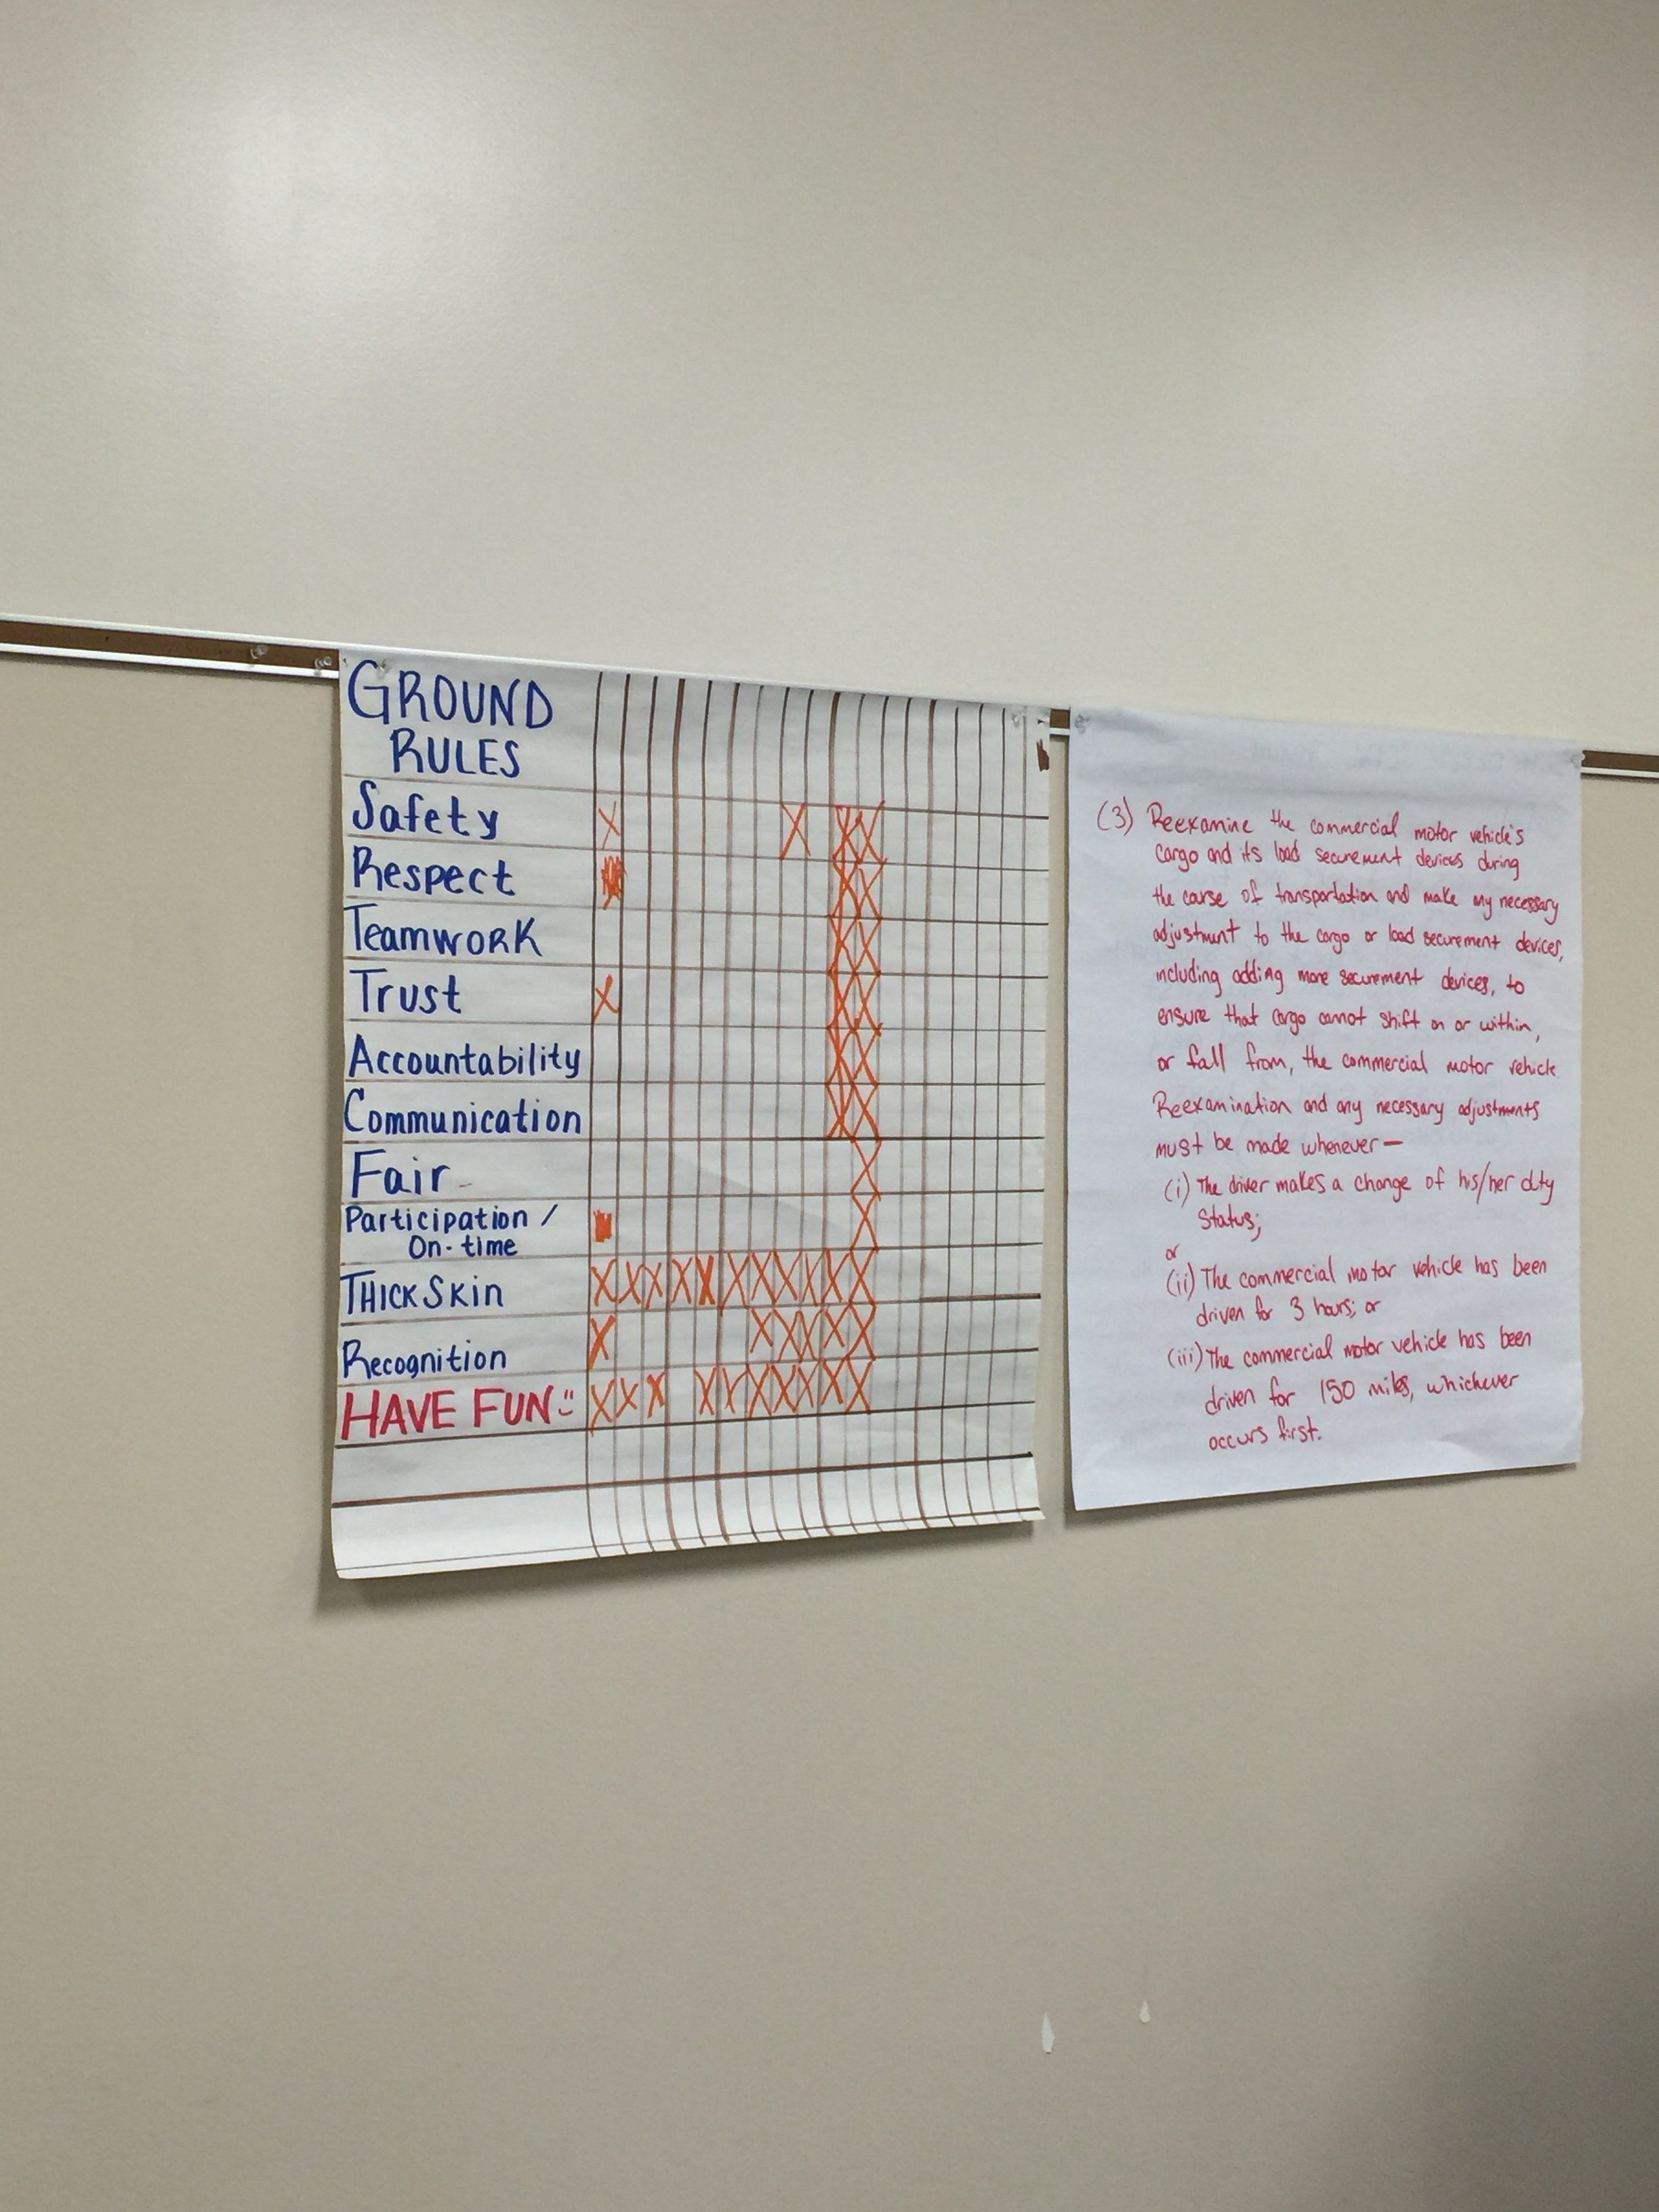 GROUND
RULES
Safety
Respect
Teamwork
Trust
Accountability
Communication
Fair
Participation /
On-time
THICK SKin
Recognition
HAVE FUN
(3) Reexamine the commercial motor vehicle's
cargo and its load securement devices during
the course of transportation and make any necessary
adjustment to the cargo or load securement devices,
including adding more securement devices, to
ensure that cargo cannot shift on or within,
or fall from, the commercial motor vehicle.
Reexamination and any necessary adjustments
must be made whenever—
(i) The driver makes a change of his/her duty
status;
or
(ii) The commercial motor vehicle has been
driven for 3 hours; or
(iii) The commercial motor vehicle has been
driven for 150 miles, whichever
occurs first.